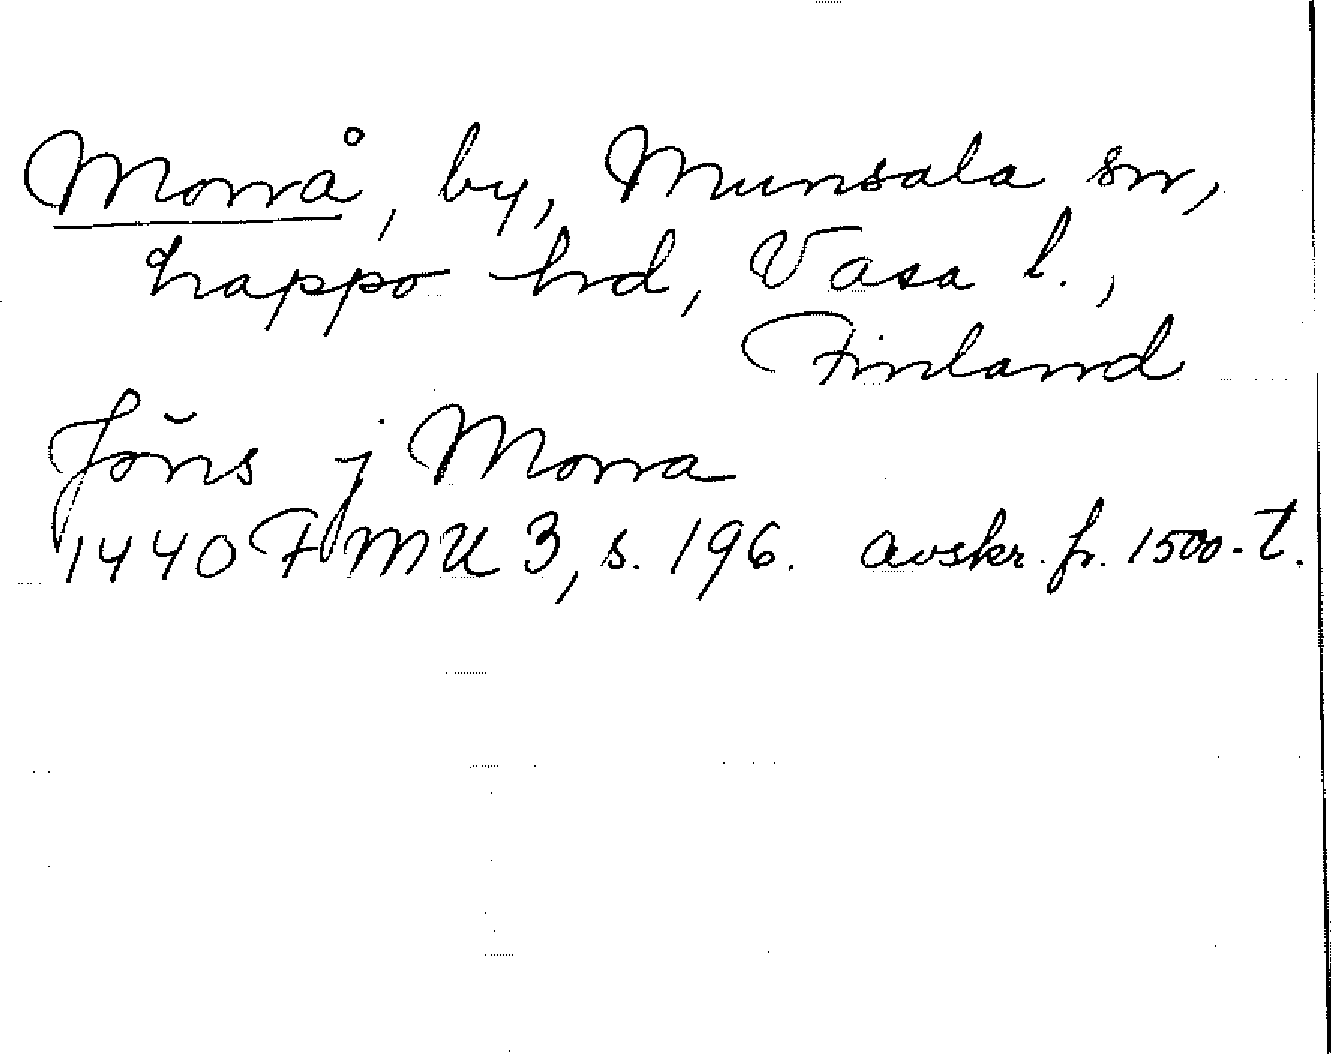 Monå, by, Munsala sn,
Lappo hd, Vasa l.,
Finland
Jöns j Mona
1440 FMU 3, s. 196. avskr. fr. 1500-t.